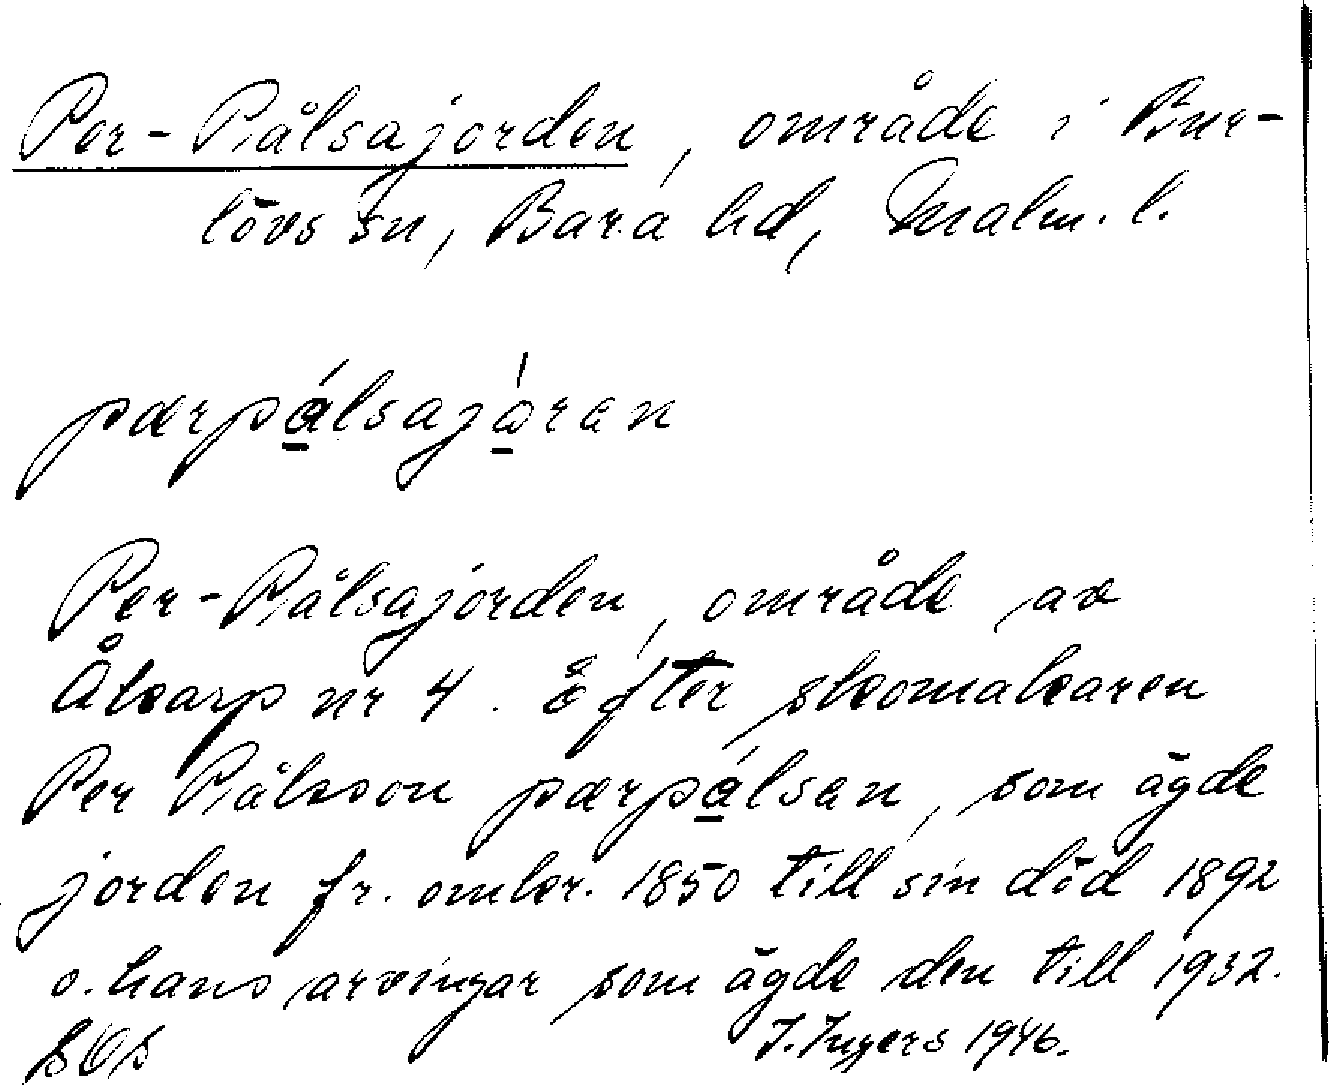 Per-Pålsajorden, område i Bur-
lövs sn, Bara hd, Malm. l.
pærpålsajo̱ran
Per-Pålsajorden, område av
Åkarp nr 4. Efter skomakaren
Per Pålsson pærpålsan, som ägde
jorden fr. omkr. 1850 till sin död 1892
o. hans arvingar som ägde den till 1932.
I. Ingers 1946.